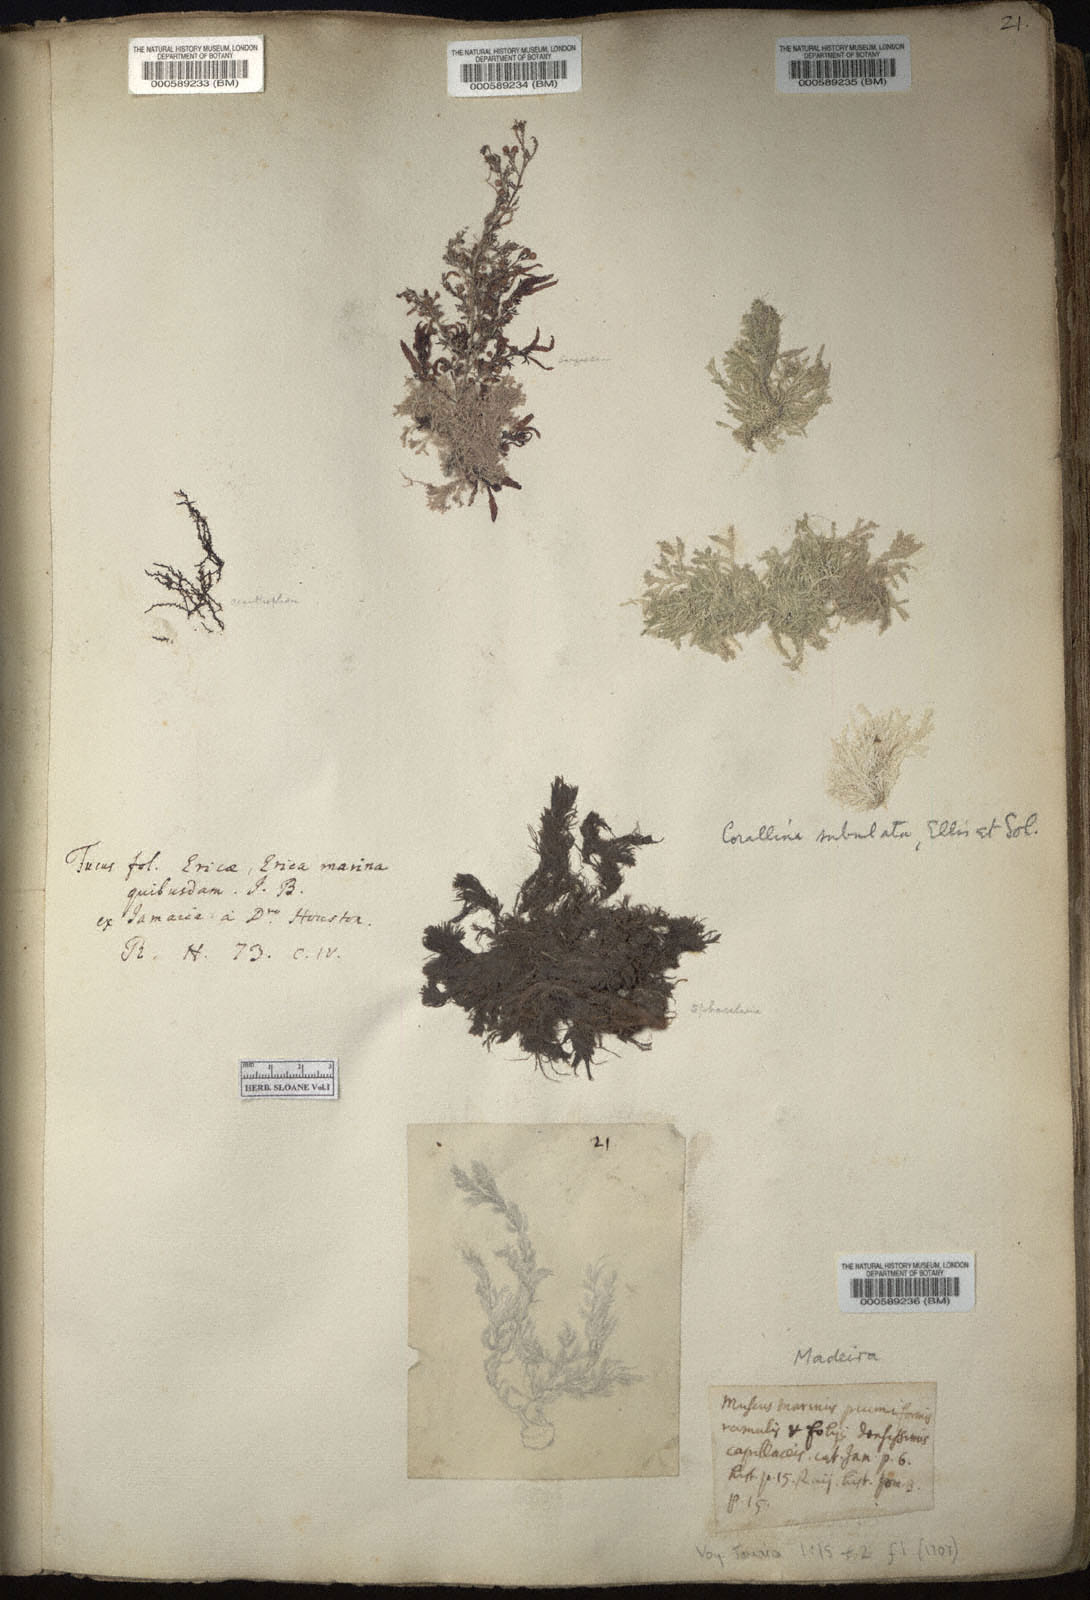 21.
THE NATURAL HISTORY MUSEUM, LONDON
DEPARTMENT OF BOTANY
000589233 (BM)
THE NATURAL HISTORY MUSEUM, LONDON
DEPARTMENT OF BOTANY
000589234 (BM)
THE NATURAL HISTORY MUSEUM, LONDON
DEPARTMENT OF BOTANY
000589235 (BM)
Corallina subulata, Ellis et Sol.
Fucus fol. Ericæ, Erica marina
quibusdam. J. B.
ex Jamaica a Dre Houston.
R. H. 73. c. iv.
Sphacelaria
mm 1 2 3
HERB. SLOANE Vol.1
21
THE NATURAL HISTORY MUSEUM, LONDON
DEPARTMENT OF BOTANY
000589236 (BM)
Madeira
Muscus marinus plumiformis
ramulis & folijs densissimis
capillaceis. cat. Jam p. 6.
hist. p. 15. Raij. hist. tom. 3.
p. 15.
Voy. Jamaica 1:15 t. 2 f. 1 (1707)